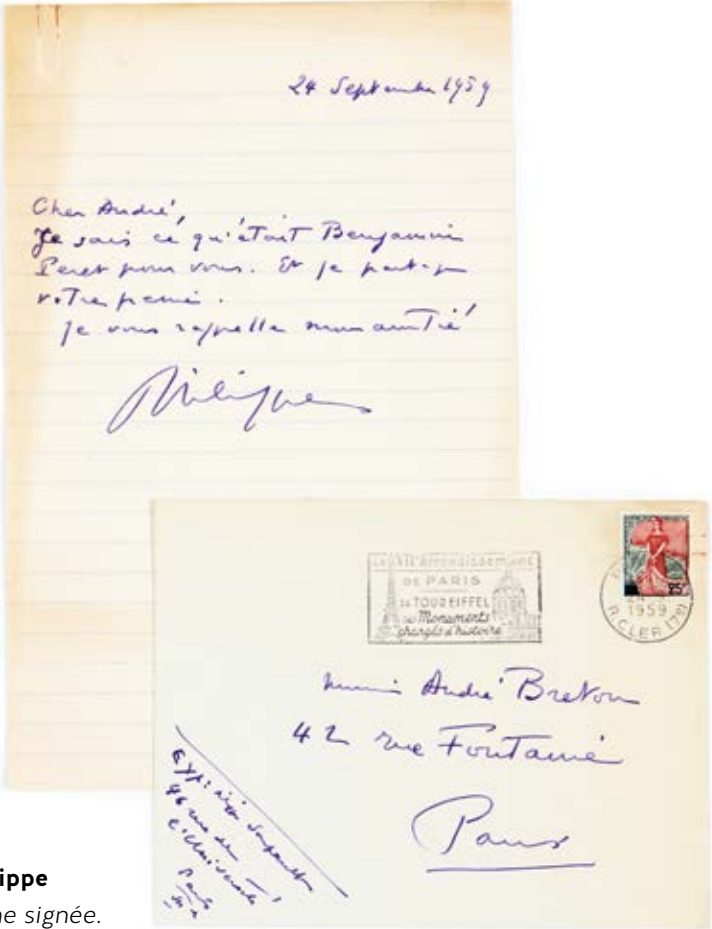 24 September 1959
Cher André,
Je sais ce qu'était Benjamin
Peret pour vous. Et je partage
votre peine.
Je vous rappelle mon amitié
Philippe
Le VIIe Arrondissement
DE PARIS
la TOUR EIFFEL
ses Monuments
chargés d'histoire
25F
24-9
1959
R.CLER (7e)
André Breton
42 rue Fontaine
Paris
Soupault
96 rue de
l'Université
Paris
ippe
ne signée.